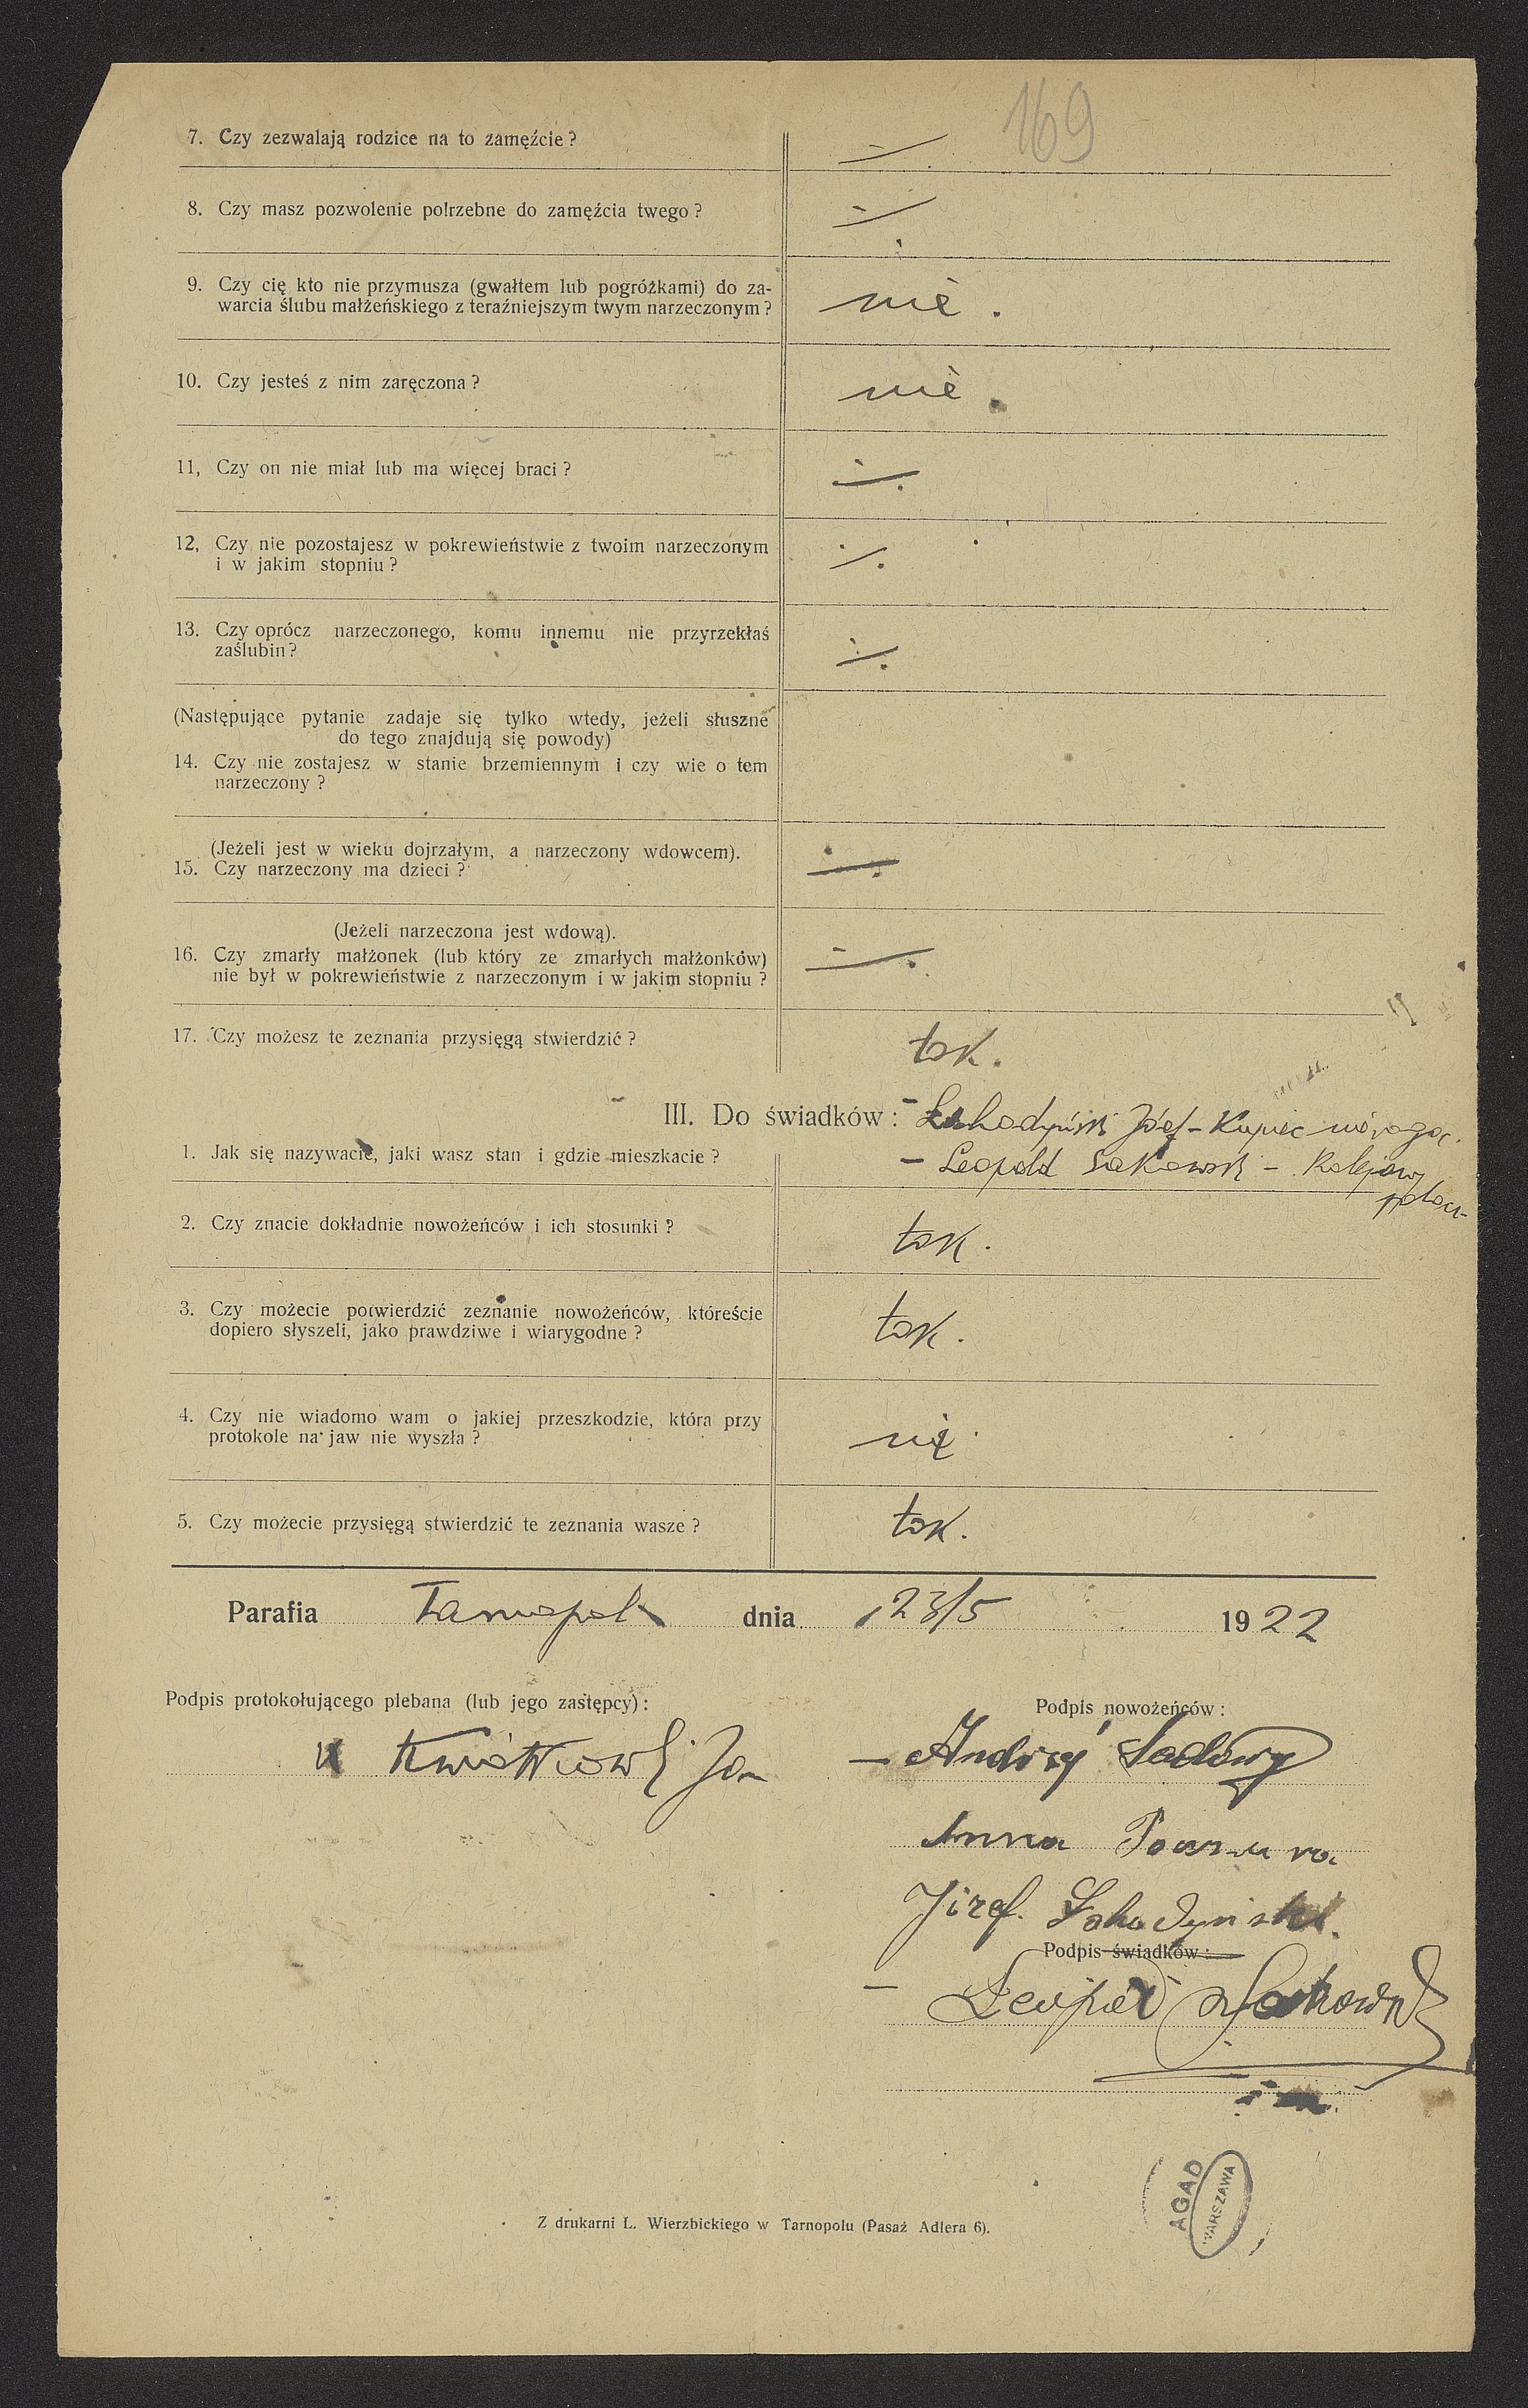 169
7. Czy zezwalają rodzice na to zamęźcie ?
8. Czy masz pozwolenie potrzebne do zamęźcia twego ?
9. Czy cię kto nie przymusza (gwałtem lub pogróżkami) do za-
warcia ślubu małżeńskiego z teraźniejszym twym narzeczonym ?
nie.
10. Czy jesteś z nim zaręczona ?
nie.
11, Czy on nie miał lub ma więcej braci ?
12, Czy nie pozostajesz w pokrewieństwie z twoim narzeczonym
i w jakim stopniu ?
13. Czy oprócz narzeczonego, komu innemu nie przyrzekłaś
zaślubin ?
(Następujące pytanie zadaje się tylko wtedy, jeżeli słuszne
do tego znajdują się powody)
14. Czy nie zostajesz w stanie brzemiennym i czy wie o tem
narzeczony ?
(Jeżeli jest w wieku dojrzałym, a narzeczony wdowcem).
15. Czy narzeczony ma dzieci ?
(Jeżeli narzeczona jest wdową).
16. Czy zmarły małżonek (lub który ze zmarłych małżonków)
nie był w pokrewieństwie z narzeczonym i w jakim stopniu ?
17. Czy możesz te zeznania przysięgą stwierdzić ?
tak.
III. Do świadków : Józef - Kupiec
1. Jak się nazywacie, jaki wasz stan i gdzie mieszkacie ?
- Leopold Sakowski - Kolejowy
2. Czy znacie dokładnie nowożeńców i ich stosunki ?
tak.
3. Czy możecie potwierdzić zeznanie nowożeńców, któreście
dopiero słyszeli, jako prawdziwe i wiarygodne ?
tak.
4. Czy nie wiadomo wam o jakiej przeszkodzie, która przy
protokole na jaw nie wyszła ?
nie
5. Czy możecie przysięgą stwierdzić te zeznania wasze ?
tak.
Parafia Tarnopol dnia 23/5 1922
Podpis protokołującego plebana (lub jego zastępcy) :
Podpis nowożeńców :
Kwiatkowski Jan
- Andrzej Sadowy
Anna
Józef
Podpis świadków :
- Leopold Sakowski
AGAD
WARSZAWA
Z drukarni L. Wierzbickiego w Tarnopolu (Pasaż Adlera 6).